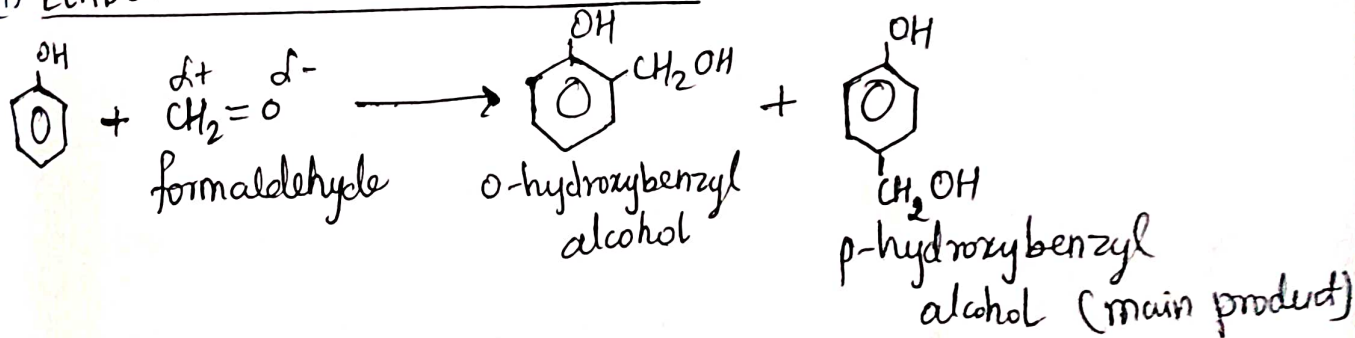 OH
OH
OH
δ+ δ-
CH₂ = O
CH₂ OH
+
+
formaldehyde
o-hydroxybenzyl
alcohol
CH₂ OH
p-hydroxybenzyl
alcohol (main product)